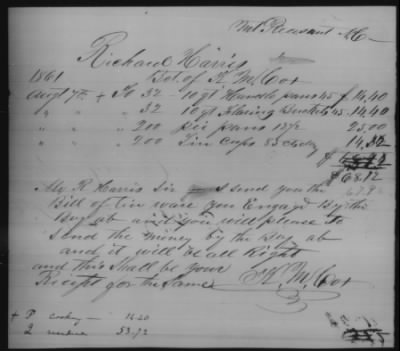 Mt Pleasant NC
Richard Harris
1861 Bot. of H. McCox
Augt 7th To 32 10 qt Handle pans 45 $14,40
" " " 32 10 qt Flaring Buckets 45 14,40
" " " 200 pie pans 12½ 25,00
" " " 200 Tin Cups 85 c
$68,12
67.92
Mr R Harris Sir I send you the
Bill of tin ware you Engagd By the
Boy ab and you will please to
send the money by the Boy ab
and it will be all Right
and this Shall be your
Recipt for the Same H. McCox
+ P cooking — 14.40
2 53.72